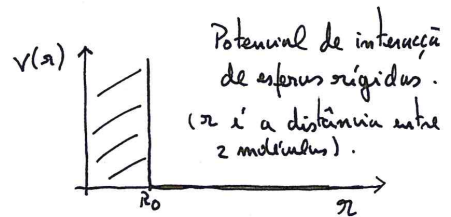 Potencial de interacçã
V(r)
de esferas rígidas.
(r é a distância entre
2 moléculas).
R₀
r